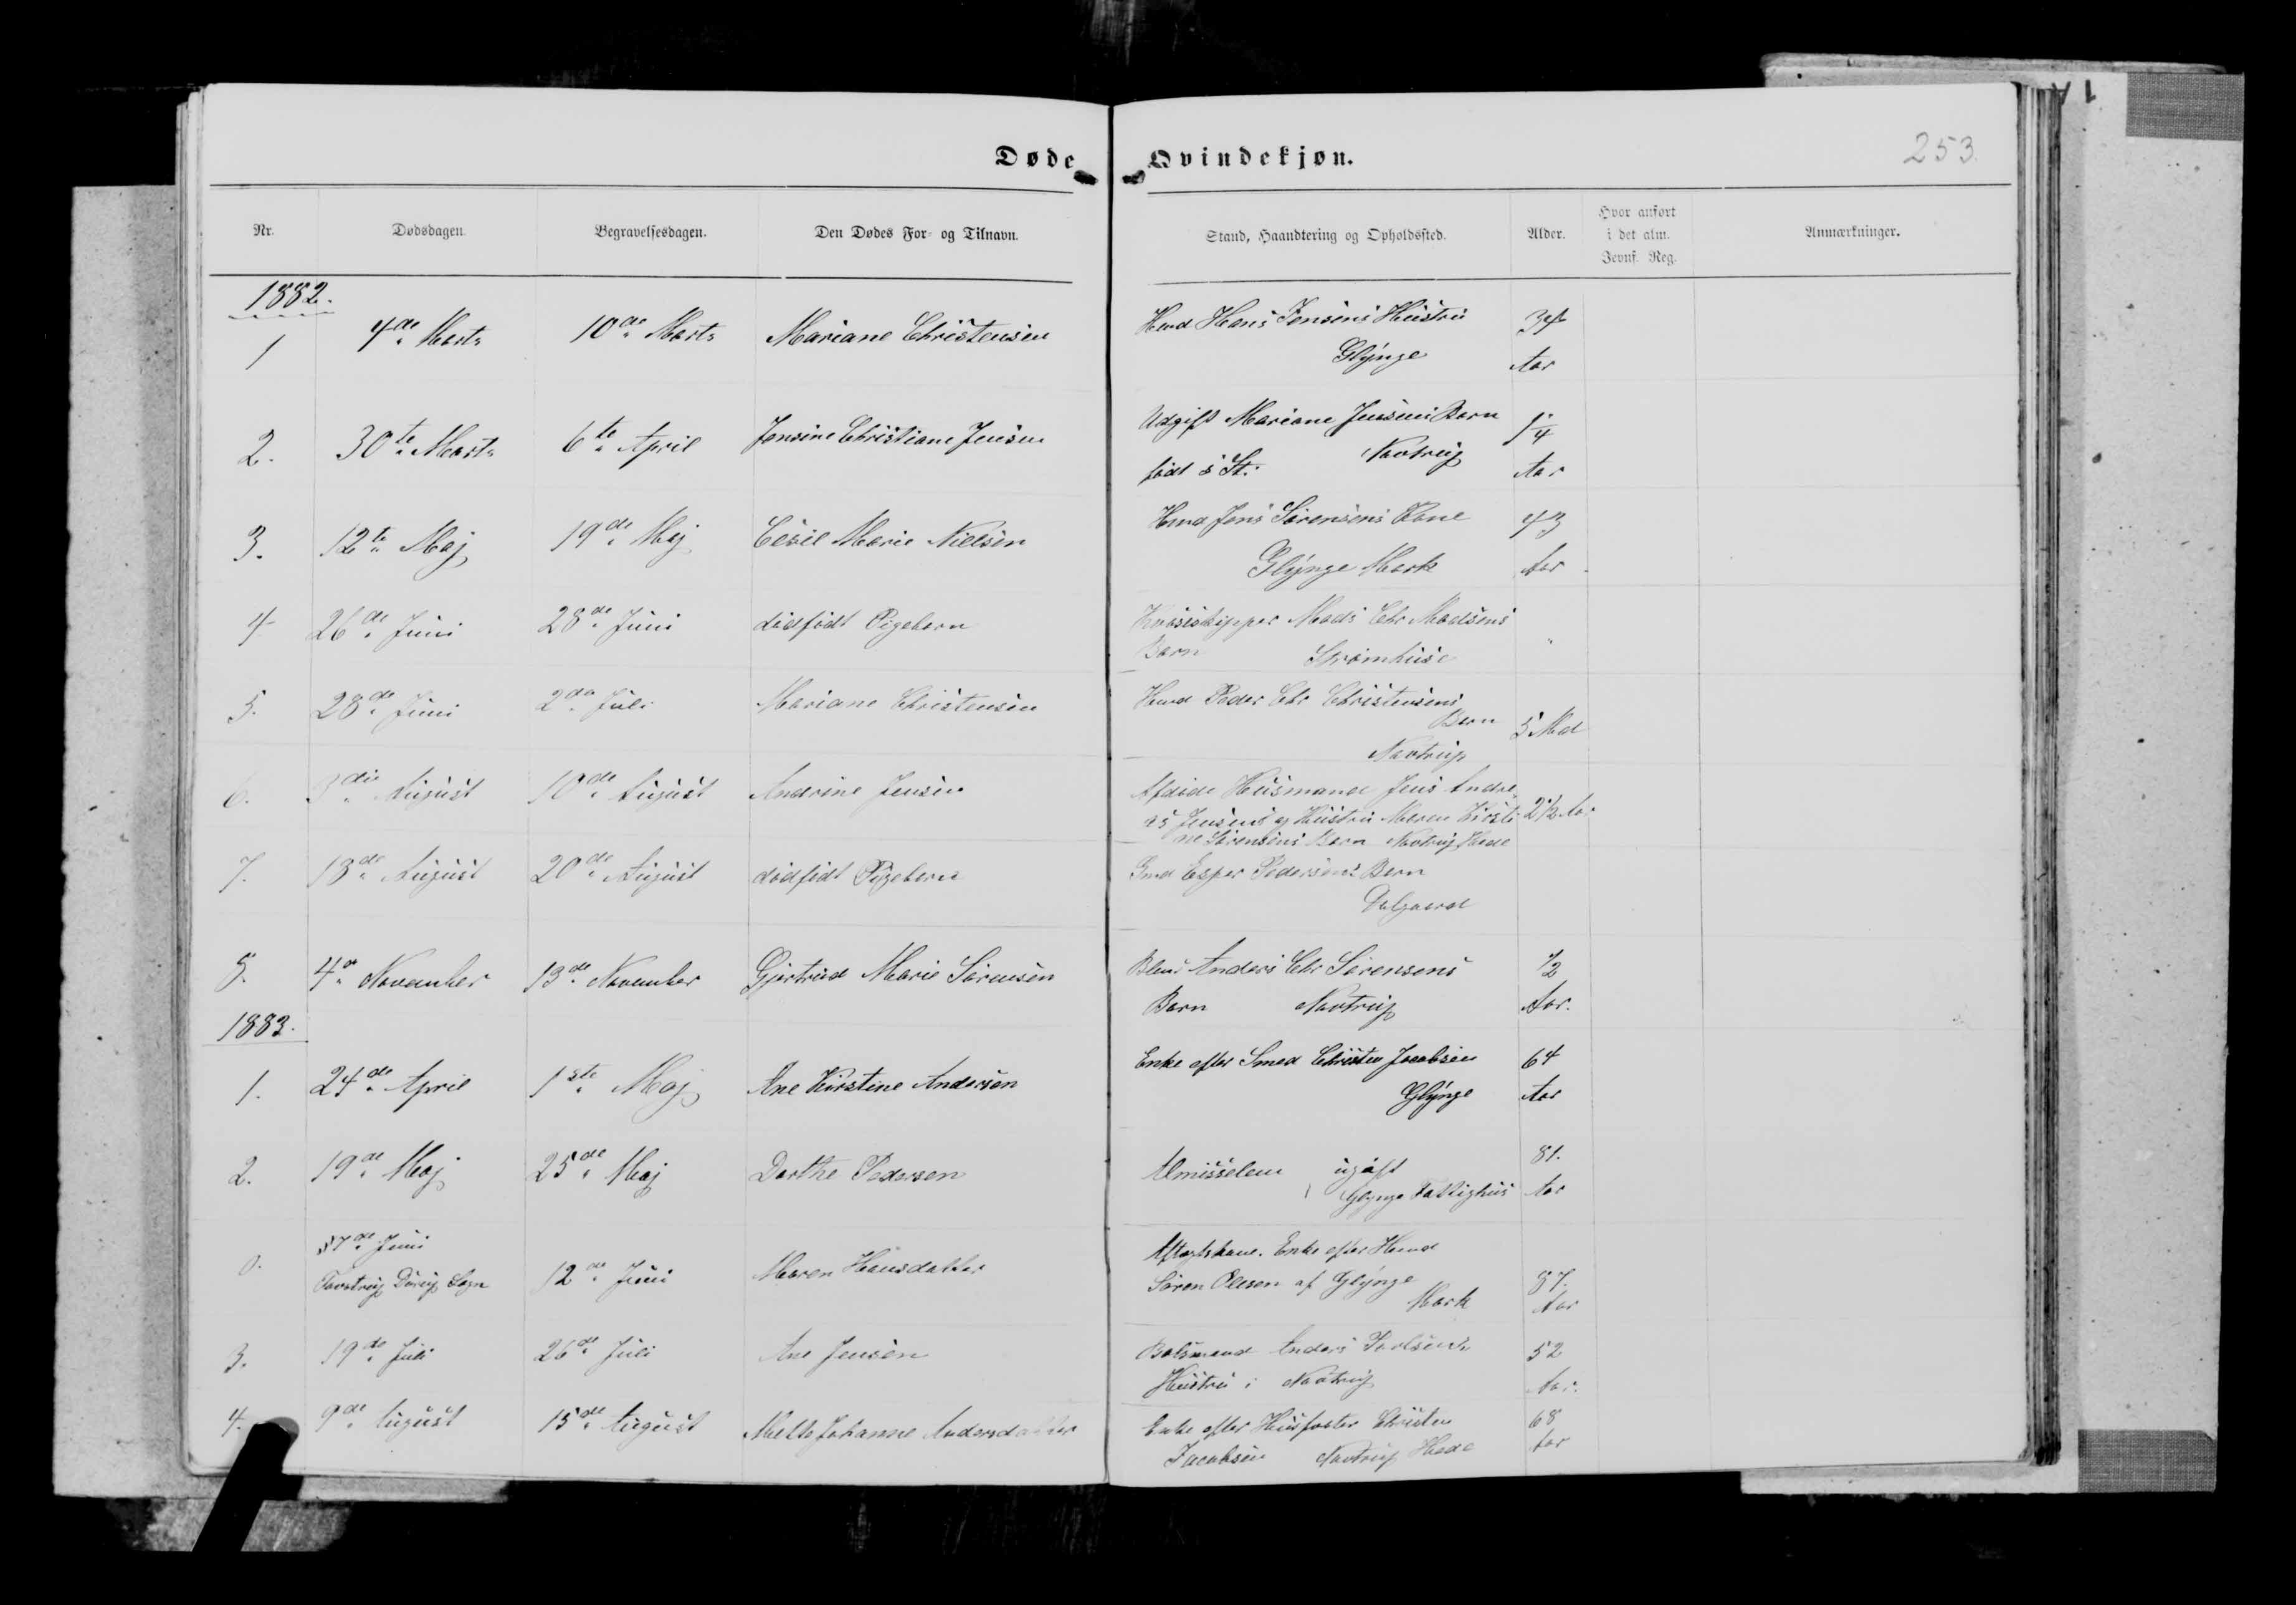 Døde Qvindekjøn.
253.
Nr. Dødsdagen. Begravelsesdagen. Den Dødes For- og Tilnavn. Stand, Haandtering og Opholdssted. Alder. Hvor anført i det alm. Jevnf. Reg. Anmærkninger.
1882.
1 4de Marts 10de Marts Mariane Christensen Hmd Hans Jensens Hustru 34
Glynge Aar
2. 30te Marts 6te April Jensine Christiane Jensen Udgift Mariane Jensens Barn 1 1/4
født i St. Nautrup Aar
3. 12te Maj 19de Maj Cecil Marie Nielsen Hmd Jens Sørensens Kone 43
Glynge Mark Aar
4 26de Juni 28de Juni dødfødt Pigebarn Mads Chr Madsens "
Barn Strømhuse
5. 28de Juni 2den Juli Mariane Christensen Hmd Peder Chr Christensens
Barn 5 Md
Nautrup
6. 3die August 10de August Andrine Jensen Afdøde Husmand Jens Andre-
as Jensens og Hustru Maren Kirsti- 2 1/2 Aar
ne Sørensens Barn Nautrup Hede
7. 13de August 20de August dødfødt Pigebarn Gmd Esper Pedersens Barn
Dalgaard
8. 4de November 13de November Gjertrud Marie Sørensen Anders Chr Sørensens 1/2
Barn Nautrup Aar.
1883.
1. 24de April 1ste Maj Ane Kirstine Andersen Enke efter Smed Christen Jacobsen 64
Glynge Aar
2. 19de Maj 25de Maj Dorthe Pedersen Almisselem ugift 81.
Glynge Fattighus Aar
0. 7de Juni
Durup Sogn 12de Juni Maren Hansdatter Aftægtskone. Enke efter Hmd
Søren Olesen af Glynge 87.
Mark Aar
3. 19de Juli 26de Juli Ane Jensen Bolsmand Anders 52
Hustru i Nautrup Aar.
4. 9de August 15de August Mette Johanne Andersdatter Enke efter Husfoster Christen 68
Jacobsen Nautrup Hede Aar